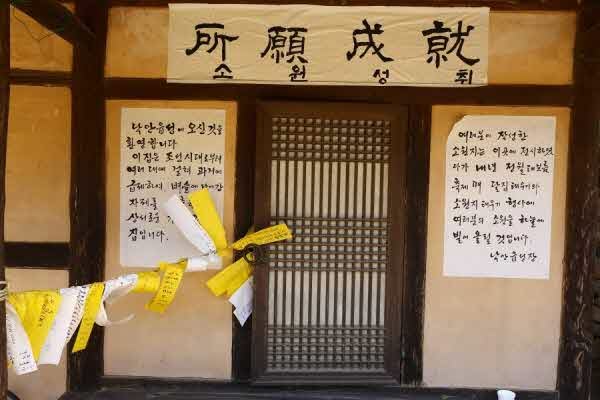 所願成就
소원성취
낙안읍성에 오신것을
환영합니다
이집은 조선시대로부터
여러대에 걸쳐 과거에
급제하여 벼슬에
자제를
상서로운
집입니다.
여러분이 작성한
소원지는 이곳에 전시하였
다가 내년 정월대보름
축제 때 달집태우기와
소원지태우기 행사에
여러분의 소원을 하늘에
빌어 올릴 것입니다.
낙안읍성장